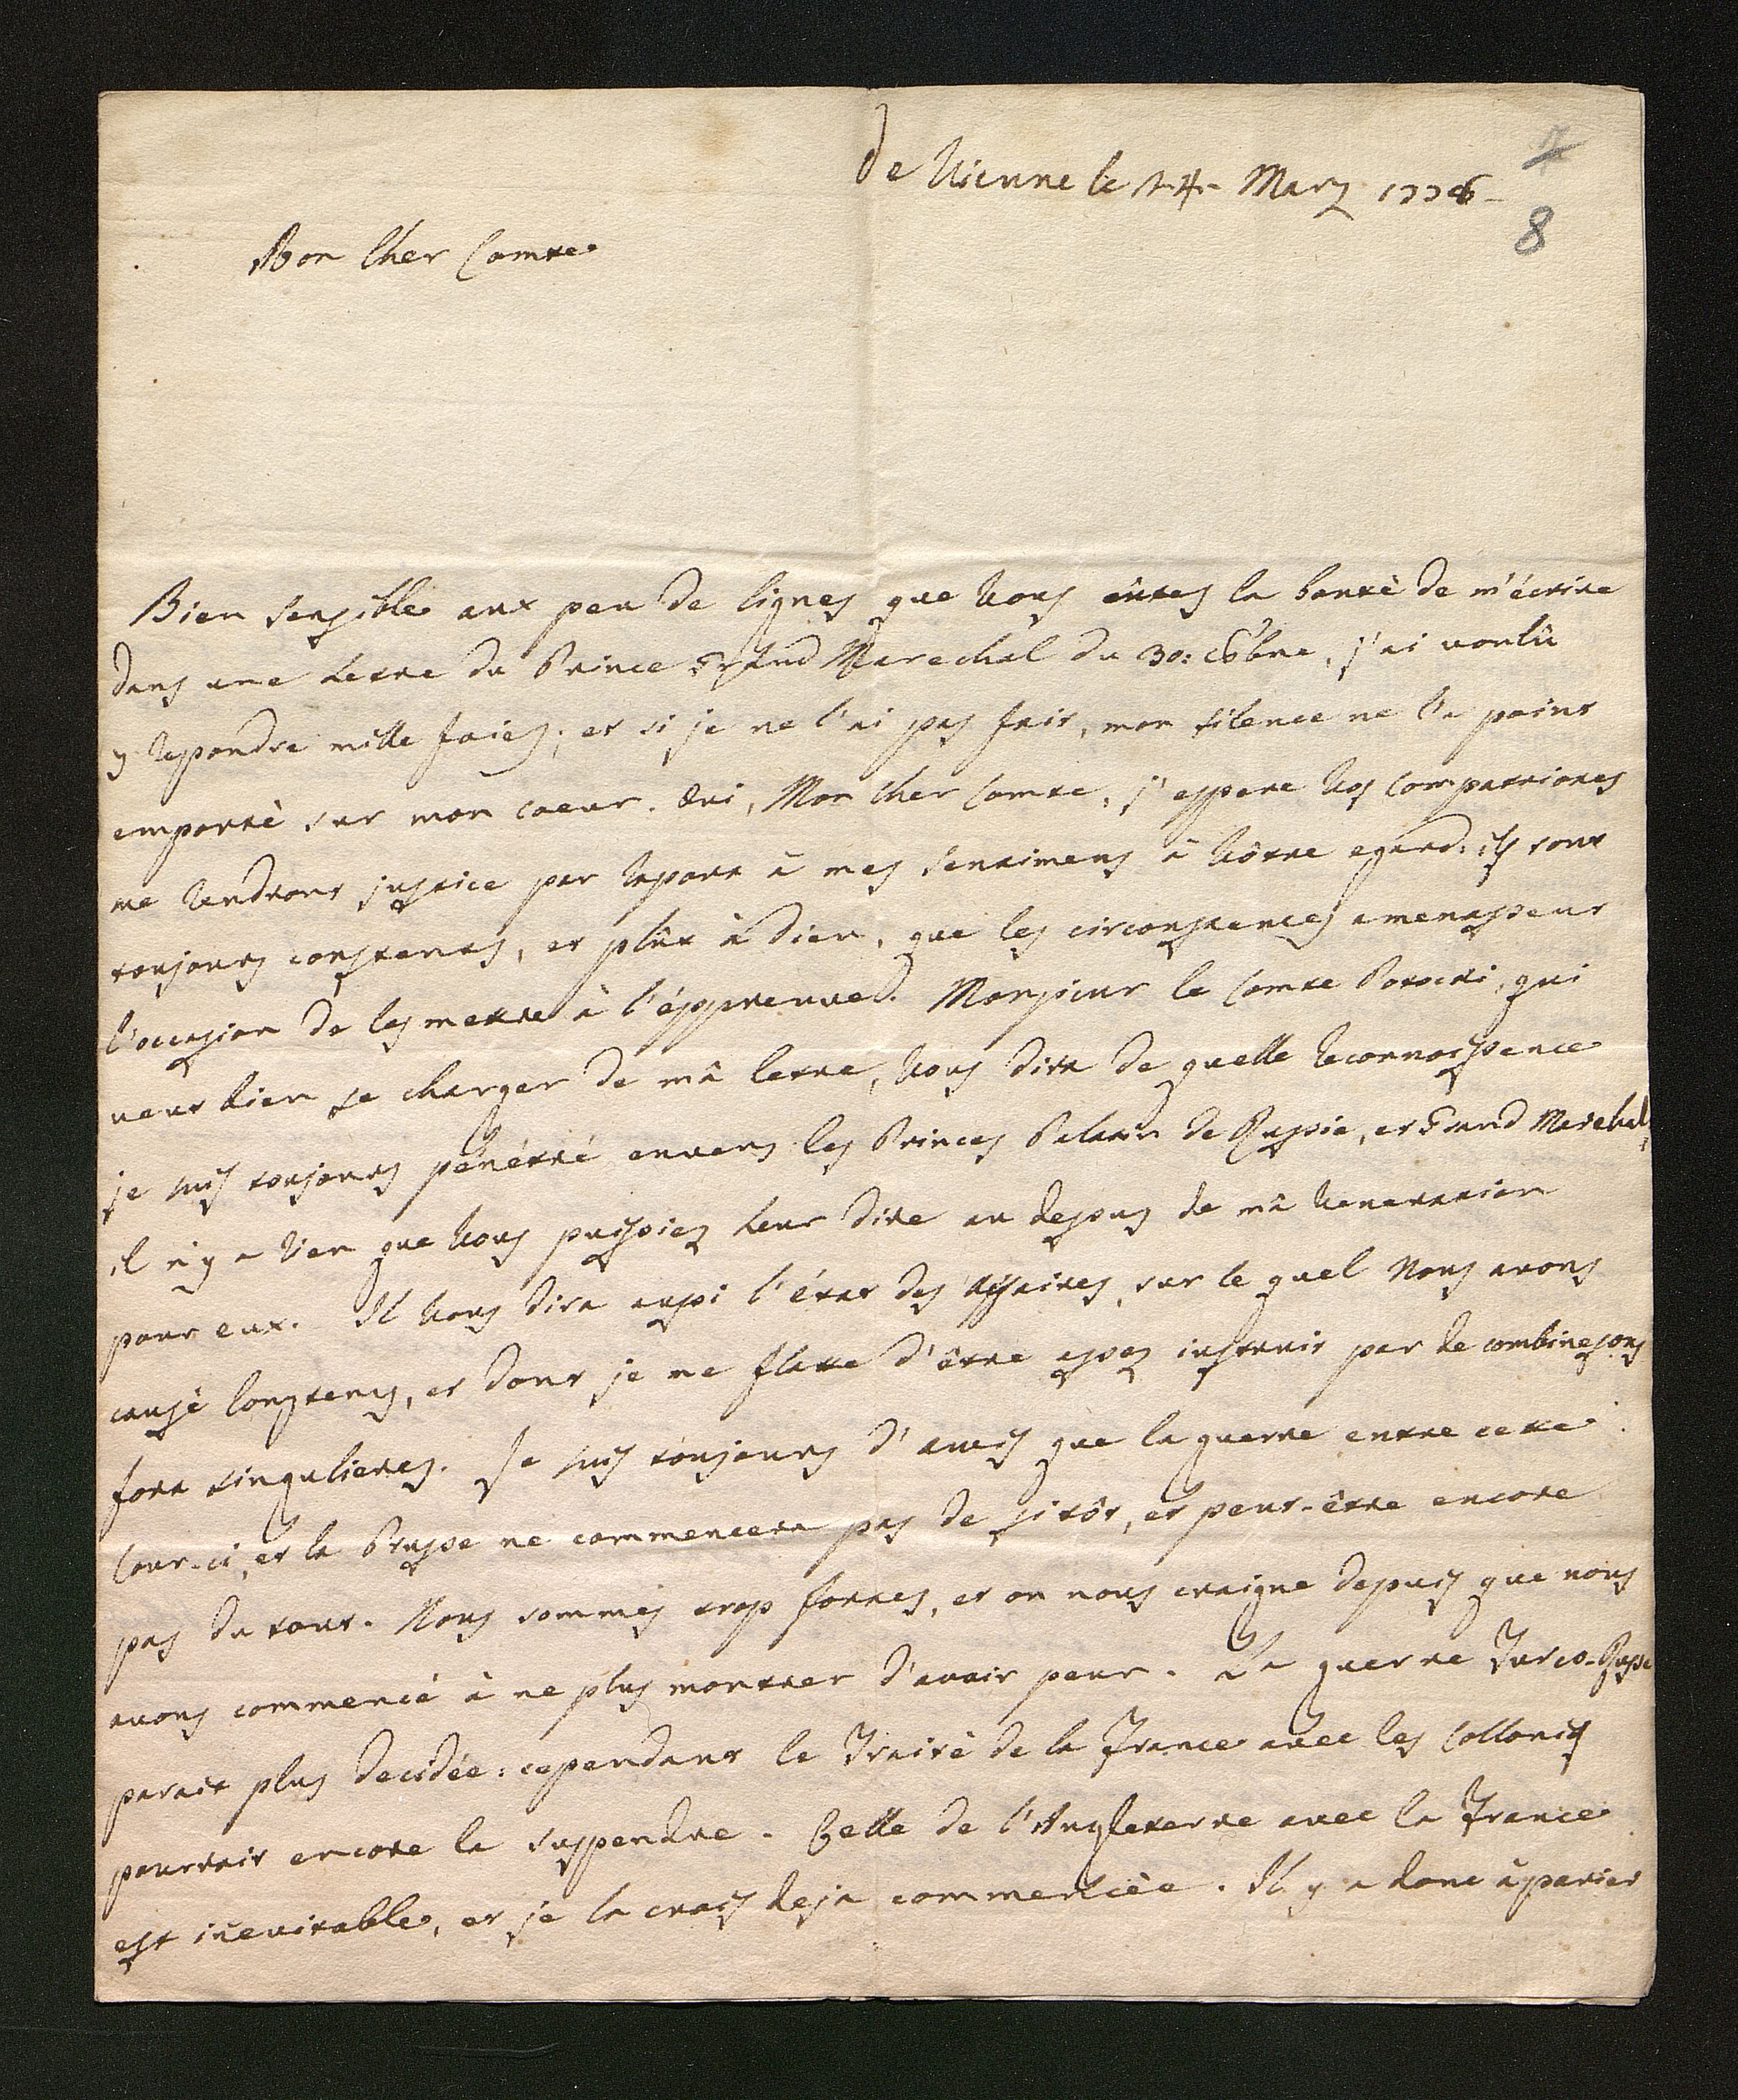 de Vienne le 14 Mars 1778
8
Mon cher Comte
Bien sensible aux peu de lignes que Vous eûtes la bontè de m'écrire
dans une lettre du Prince Grand Marechal du 30: Xbre, j'ai voulû
y repondre mille foies; et si je ne l'ai pas fait, mon silence ne l'a point
emportè sur mon coeur. Oui, Mon cher Comte, j'espere Vos compatriotes
me rendront justice par raport à mes sentimens à Vôtre egard: ils sont
toujours constants, et plût à dieu, que les circonstances amenassent
l'occasion de les mettre à l'éppreuve. Monsieur le Comte Potocki, qui
veut bien se charger de mâ lettre, Vous dira de quelle reconnoissance
je suis toujours pénétré envers les Princes Palatin de Russie, et Grand Marechal,
il n'y a rien que Vous puissiez leur dire au dessus de mâ veneration
pour eux. Il Vous dira aussi l'état des affaires, sur le quel Nous avons
causè longtems, et dont je me flatte d'être assez instruit par de combinesons
fort singulieres. Je suis toujours d'avis que la guerre entre cette
Cour-ci, et la Prusse ne commencera pas de sitôt, et peut-être encore
pas du tout. Nous sommes trop fortes, et on nous craigne depuis que nous
avons commencé à ne plus montrer d'avoir peur. La guerre Turco-Russe
parait plus decidée: cependant le Traitè de la France avec les Collonies
pourrait encore la suspendre. Celle de l'Angleterre avec la France
est inevitable, et je la crois deja commencèe. Il y a donc à parier